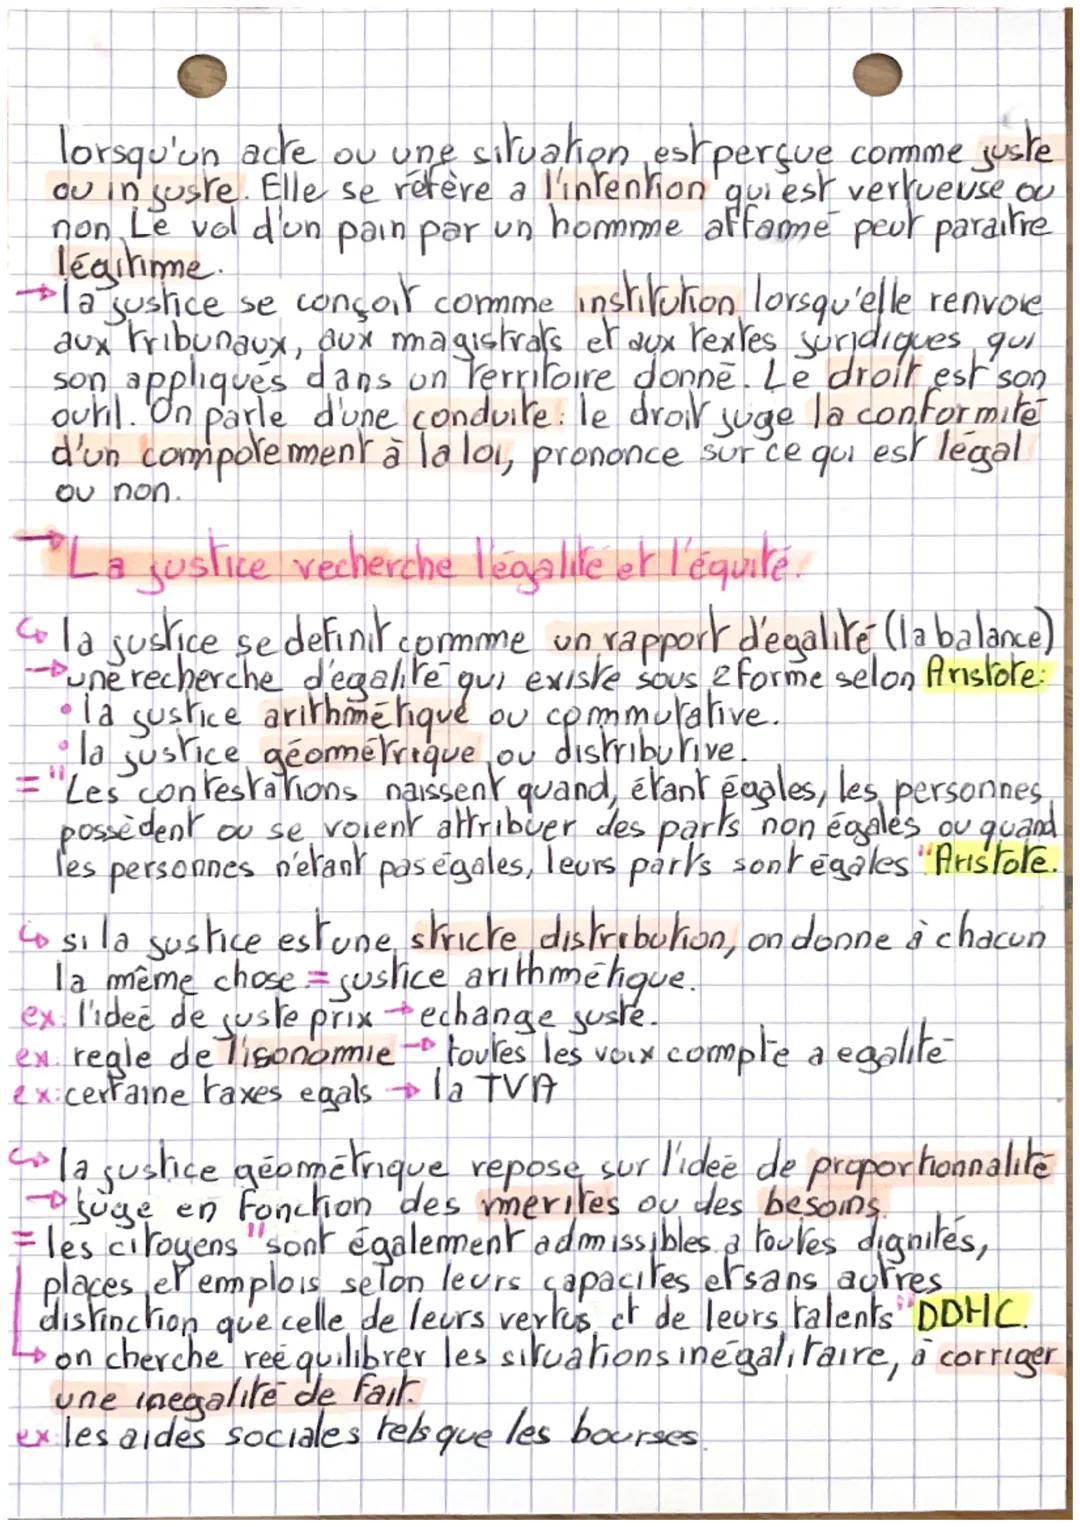 lorsqu'un acte ou une situation est perçue comme juste
ou injuste. Elle se réfère a l'intention qui est vertueuse ou
non Le vol d'un pain par un hommme affamé peut paraitre
légitime.
→ la justice se conçoit comme institution lorsqu'elle renvoie
aux tribunaux, aux magistrats et aux textes juridiques qui
son appliqués dans un territoire donné. Le droit est son
outil. On parle d'une conduite : le droit juge la conformité
d'un compotement à la loi, prononce sur ce qui est légal
ou non.
→ La justice recherche l'égalité et l'équité.
↪ la justice se definit commme un rapport d'egalité (la balance)
→ une recherche d'egalité qui existe sous 2 forme selon Aristote:
• la justice arithmétique ou commutative.
• la justice géométrique ou distributive.
= "Les contestations naissent quand, étant égales, les personnes
possèdent ou se voient attribuer des parts non égales ou quand
les personnes n'étant pas égales, leurs parts sont égales" Aristote.
↪ si la justice est une stricte distribution, on donne à chacun
la même chose = justice arithmétique.
ex: l'ideé de juste prix → echange juste.
ex: regle de l'isonomie → toutes les voix compte a egalité
ex: certaine taxes egals → la TVA
↪ la justice géométrique repose sur l'ideé de proportionnalité
→ juge en fonction des merites ou des besoins.
= les citoyens "sont également admissibles a toutes dignités,
places et emplois selon leurs capacites et sans autres
distinction que celle de leurs vertus et de leurs talents" DDHC.
↳ on cherche reéquilibrer les situations inégalitaire, à corriger
une inegalité de fait.
ex: les aides sociales tels que les bourses.